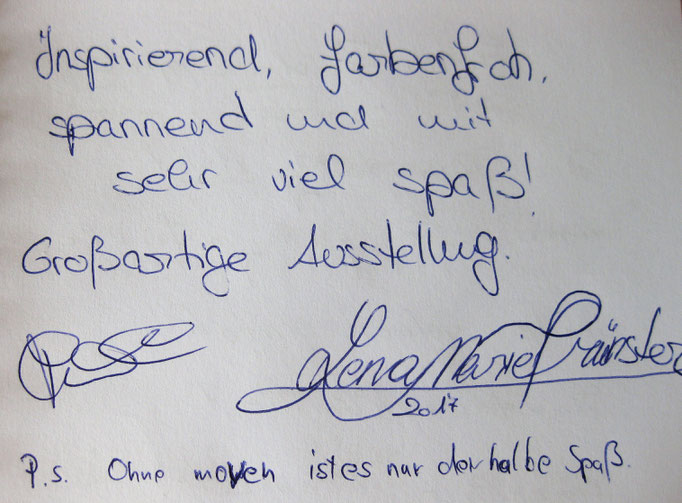 Inspirierend, farbenfroh,
spannend und mit
sehr viel spaß!
Großartige Ausstellung.
Lena Marie
2017
P.s. Ohne malen ist es nur der halbe Spaß.